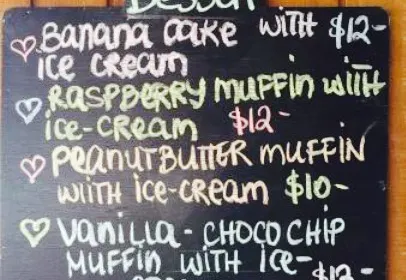 Dessert
Banana cake with $12-
ice cream
Raspberry muffin wiith
ice-cream $12-
Peanutbutter muffin
wiith ice-cream $10-
Vanilla - choco chip
muffin with ice-
$12-